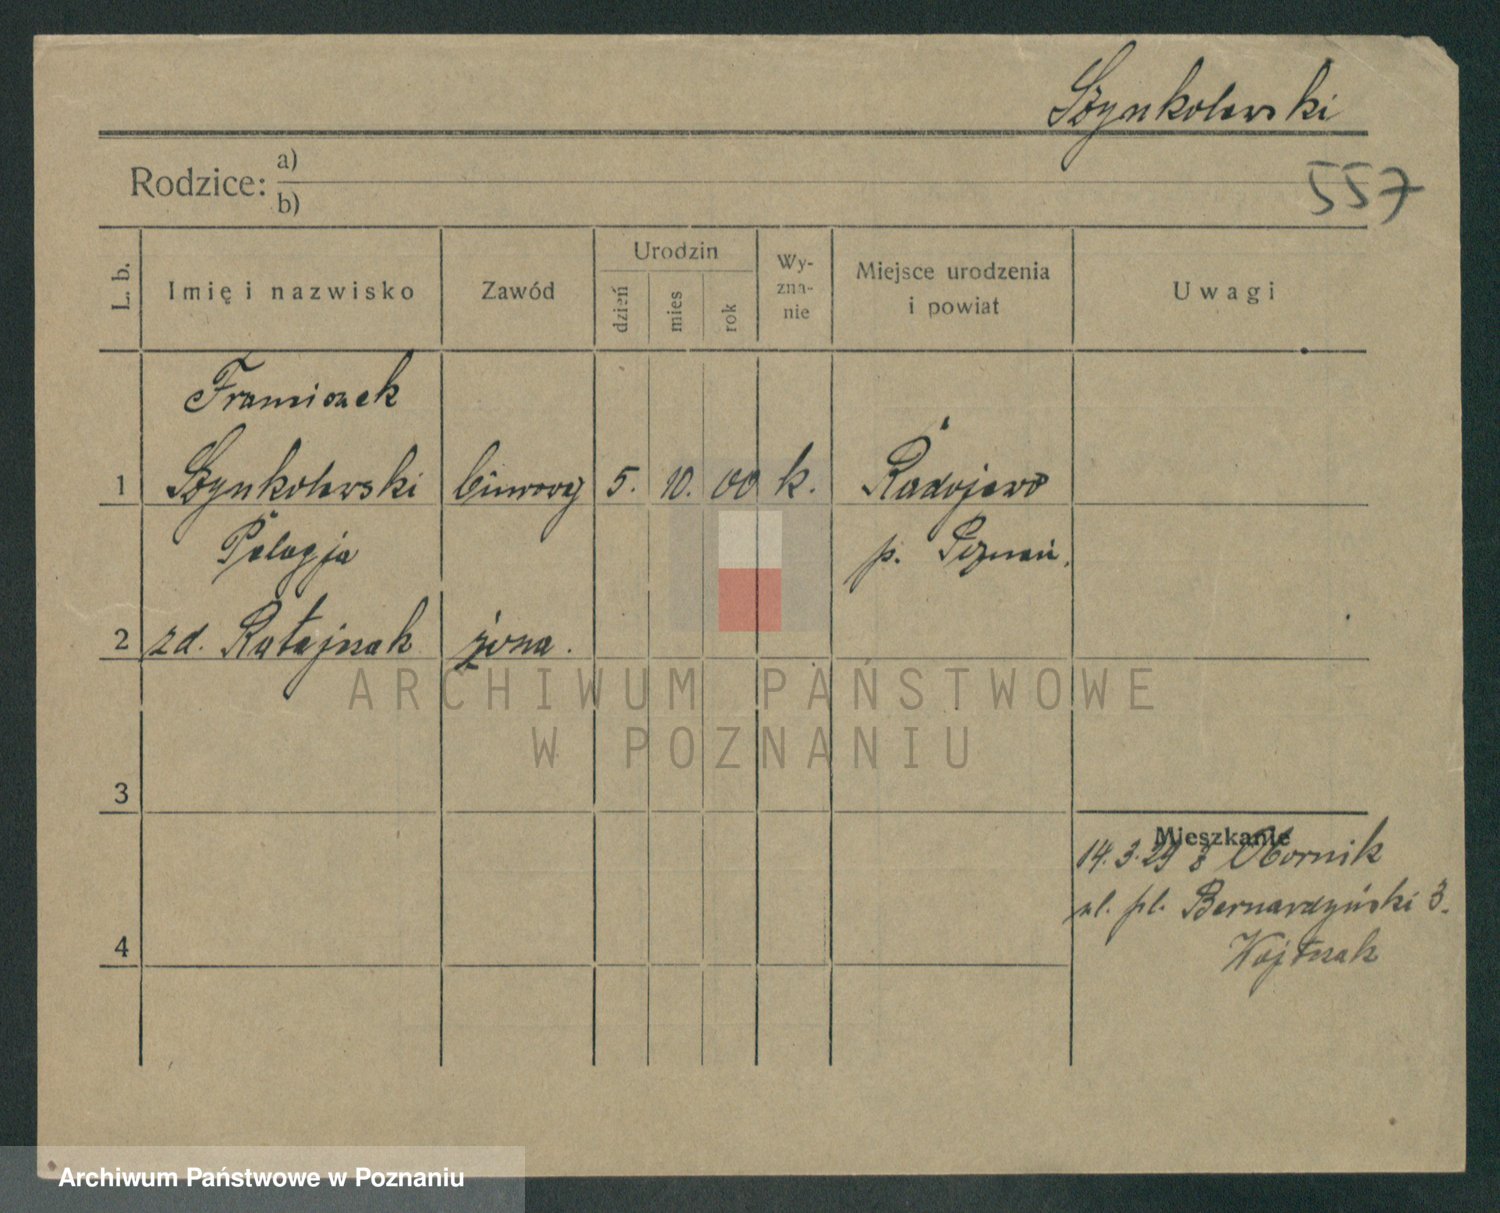 Szynkolewski
Rodzice: a)
b)
557
L. b.
Imię i nazwisko
Zawód
Urodzin
dzień
mies
rok
Wy-
zna-
nie
Miejsce urodzenia
i powiat
Uwagi
Franciszek
1 Szynkolewski biurowy 5. 10. 00 k. Radojewo
Pelagja p. Poznań.
2 zd. Ratajczak żona.
ARCHIWUM PAŃSTWOWE
W POZNANIU
3
Mieszkanie
14.3.29 z Obornik
ul. pl. Bernardyński 3.
4
Wojtczak
Archiwum Państwowe w Poznaniu